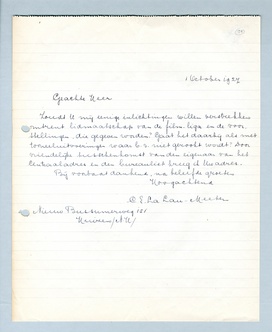 1 October 1927
Geachte Heer
Zoudt U mij eenige inlichtingen willen verstrekken
omtrent lidmaatschap van de film liga en de voor
stellingen die gegeven worden? Gaat het daarbij als met
tooneeluitvoeringen waar b.z. niet gerookt wordt? Door
vriendelijke bestemming van den eigenaar van het
Centraaladres en der bureaulist kreeg ik Uw adres.
Bij voorbaat dankend, na beleefde groeten
Hoogachtend
Nieuw Bussumerweg 121